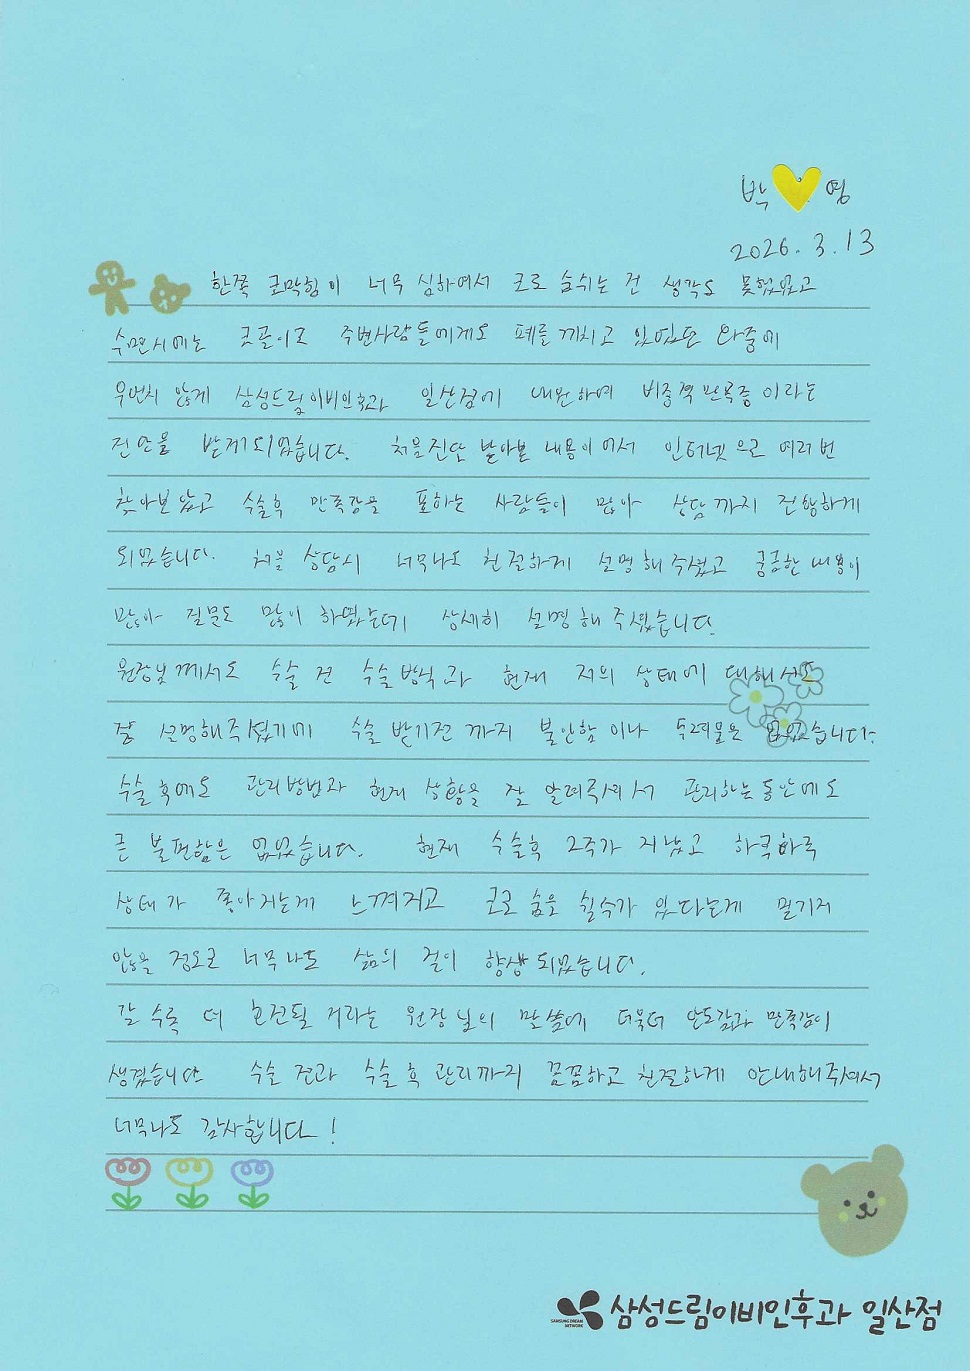 박 영
2026. 3. 13
한쪽 코막힘이 너무 심하여서 코로 숨쉬는 건 생각도 못했었고
수면시에는 코골이로 주변사람들에게도 폐를 끼치고 있었던 와중에
우연치 않게 삼성드림이비인후과 일산점에 내원하여 비중격만곡증이라는
진단을 받게되었습니다. 처음진단 받아본 내용이어서 인터넷으로 여러번
찾아보았고 수술후 만족감을 표하는 사람들이 많아 상담까지 진행하게
되었습니다. 처음 상담시 너무나도 친절하게 설명해주셨고 궁금한 내용이
많아 질문도 많이 하였는데 상세히 설명해주셨습니다.
원장님께서도 수술 전 수술방식과 현재 저의 상태에 대해서도
잘 설명해주셨기에 수술 받기전까지 불안함이나 두려움은 없었습니다.
수술 후에도 관리방법과 현재 상황을 잘 알려주셔서 관리하는동안에도
큰 불편함은 없었습니다. 현재 수술후 2주가 지났고 하루하루
상태가 좋아지는게 느껴지고 코로 숨을 쉴수가 있다는게 믿기지
않을 정도로 너무나도 삶의 질이 향상되었습니다.
갈수록 더 호전될 거라는 원장님의 말씀에 더욱더 안도감과 만족감이
생겼습니다. 수술 전과 수술 후 관리까지 꼼꼼하고 친절하게 안내해주셔서
너무나도 감사합니다!
SAMSUNG DREAM NETWORK 삼성드림이비인후과 일산점